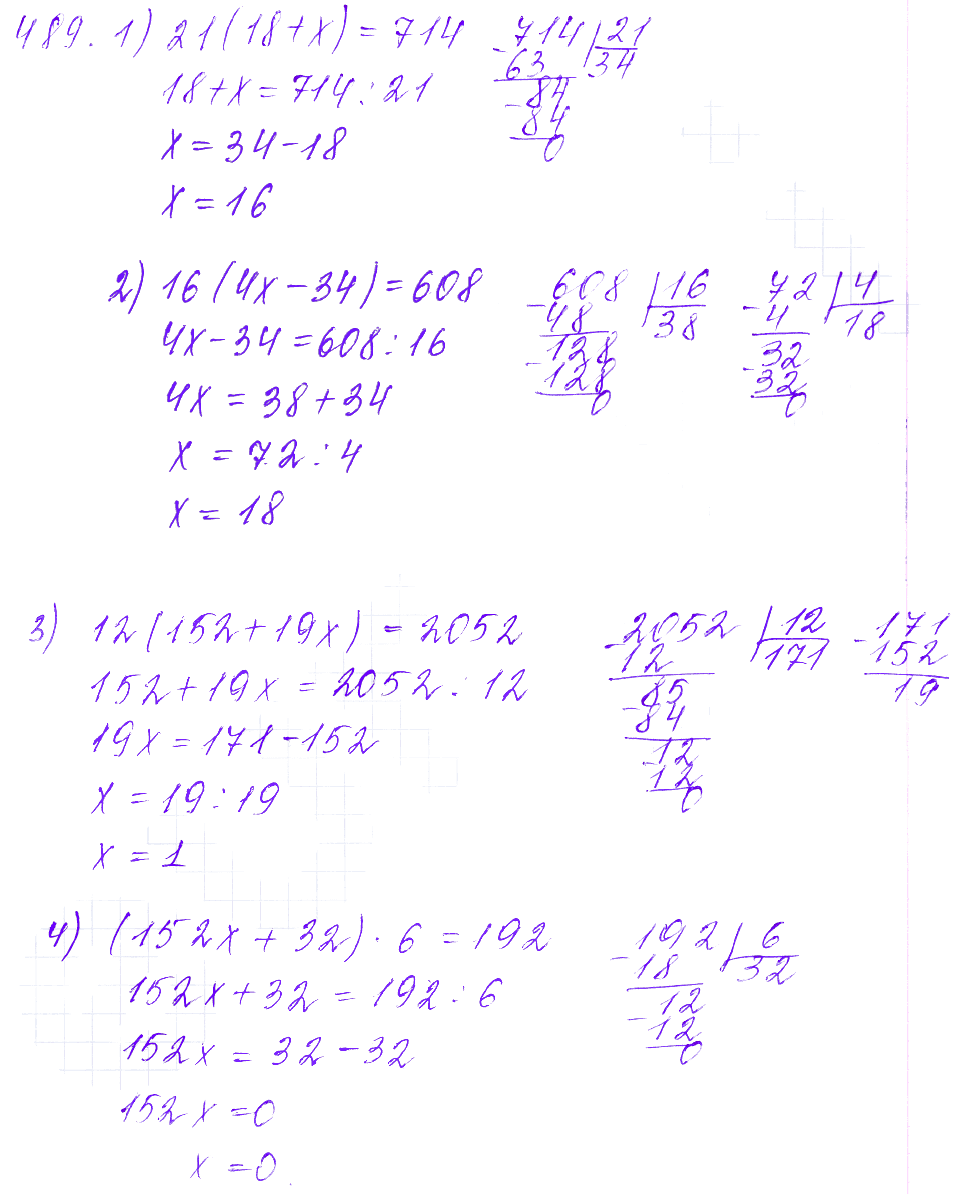 489. 1) 21(18+x) = 714
18+x = 714:21
x = 34-18
x = 16
-714 | 21
63 34
84
-84
0
2) 16(4x-34) = 608
4x-34 = 608:16
4x = 38+34
x = 72:4
x = 18
-608 | 16
48 38
-128
128
0
-72 | 4
4 18
-32
32
0
3) 12(152+19x) = 2052
152+19x = 2052:12
19x = 171-152
x = 19:19
x = 1
-2052 | 12
12 171
85
-84
12
-12
0
-171
152
19
4) (152x + 32) · 6 = 192
152x+32 = 192:6
152x = 32-32
152x = 0
x = 0.
-192 | 6
18 32
12
-12
0